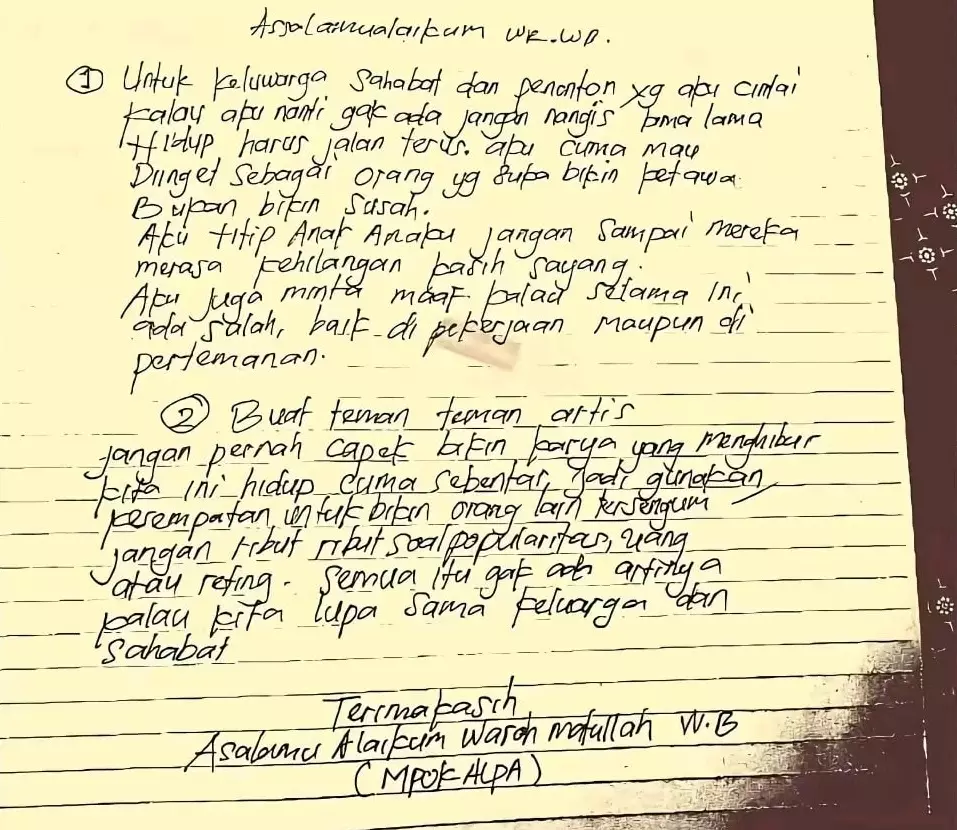 Assalamualaikum WR.WB.
① Untuk keluwarga Sahabat dan penonton yg aku cintai
kalau aku nanti gak ada jangan nangis lama lama
Hidup harus jalan terus. aku cuma mau
Diinget Sebagai orang yg suka bikin ketawa
Bukan bikin Susah.
Aku titip Anak Anakku jangan Sampai mereka
merasa kehilangan kasih sayang.
Aku juga minta maaf kalau selama ini
ada salah, baik di pekerjaan maupun di
pertemanan.
② Buat teman teman artis
jangan pernah capek bikin karya yang menghibur
kita ini hidup cuma sebentar, jadi gunakan
kesempatan untuk bikin orang lain tersenyum
jangan ribut ribut soal popularitas, uang
atau reting. Semua itu gak ada artinya
kalau kita lupa sama keluarga dan
Sahabat
Terimakasih
Asalamu Alaikum Waroh matullah W.B
(MPOK ALPA)